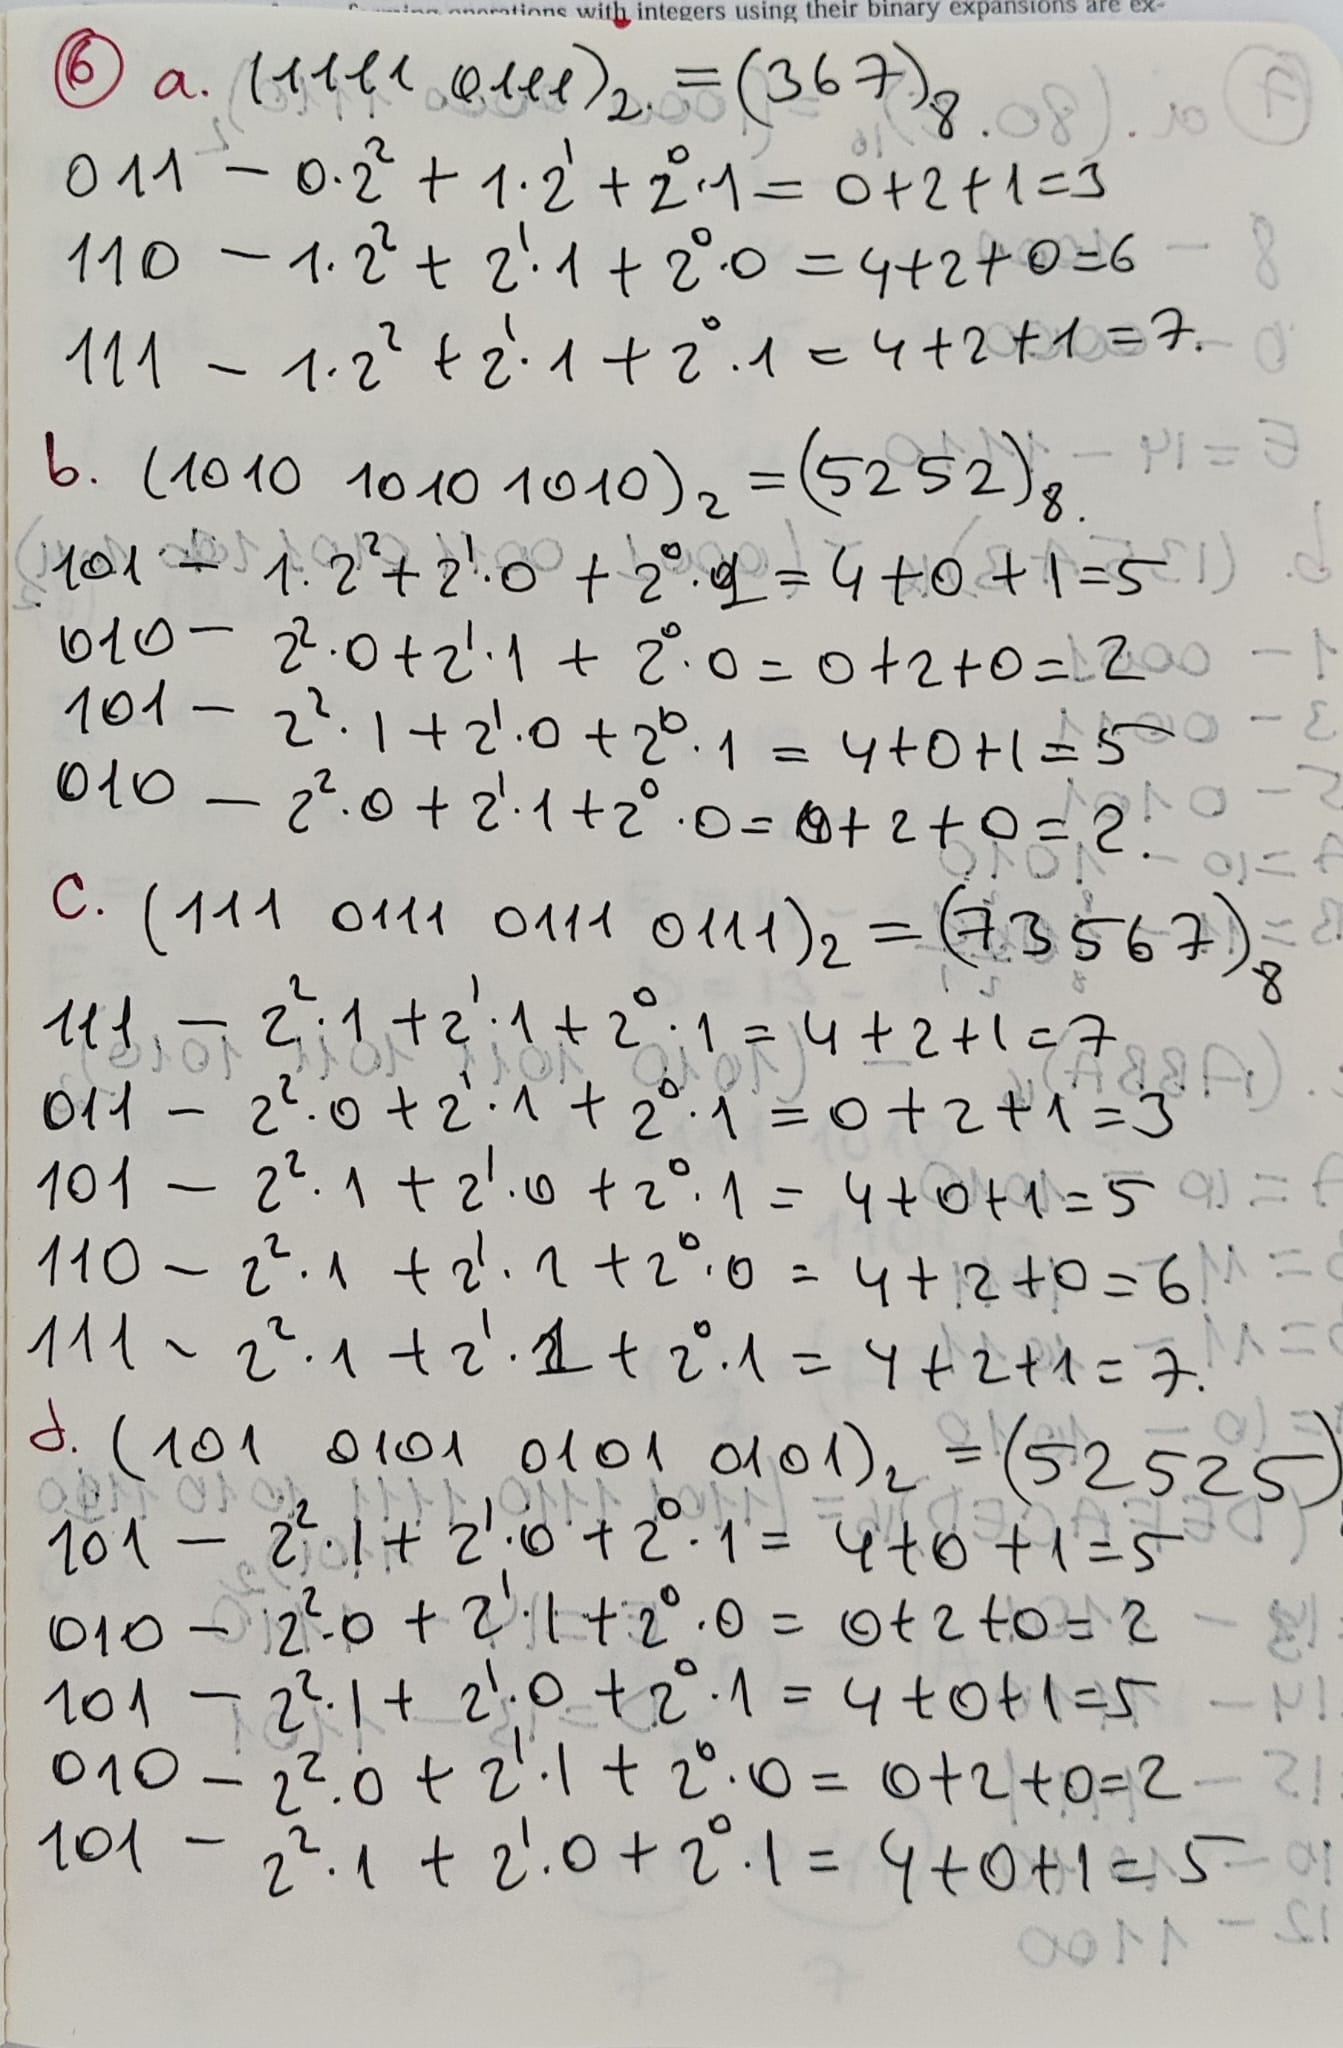 operations with integers using their binary expansions are ex-
6 a. (1111 0111)₂. = (367)₈.
011 – 0·2² + 1·2¹ + 2⁰·1 = 0+2+1=3
110 – 1·2² + 2¹·1 + 2⁰·0 = 4+2+0=6
111 – 1·2² + 2¹·1 + 2⁰·1 = 4+2+1=7.
b. (1010 1010 1010)₂ = (5252)₈.
101 – 1·2² + 2¹·0 + 2⁰·1 = 4+0+1=5
010 – 2²·0 + 2¹·1 + 2⁰·0 = 0+2+0=2
101 – 2²·1 + 2¹·0 + 2⁰·1 = 4+0+1=5
010 – 2²·0 + 2¹·1 + 2⁰·0 = 0+2+0=2.
c. (111 0111 0111 0111)₂ = (73567)₈
111 – 2²·1 + 2¹·1 + 2⁰·1 = 4+2+1=7
011 – 2²·0 + 2¹·1 + 2⁰·1 = 0+2+1=3
101 – 2²·1 + 2¹·0 + 2⁰·1 = 4+0+1=5
110 – 2²·1 + 2¹·1 + 2⁰·0 = 4+2+0=6
111 – 2²·1 + 2¹·1 + 2⁰·1 = 4+2+1=7.
d. (101 0101 0101 0101)₂ = (52525)
101 – 2²·1 + 2¹·0 + 2⁰·1 = 4+0+1=5
010 – 2²·0 + 2¹·1 + 2⁰·0 = 0+2+0=2
101 – 2²·1 + 2¹·0 + 2⁰·1 = 4+0+1=5
010 – 2²·0 + 2¹·1 + 2⁰·0 = 0+2+0=2
101 – 2²·1 + 2¹·0 + 2⁰·1 = 4+0+1=5